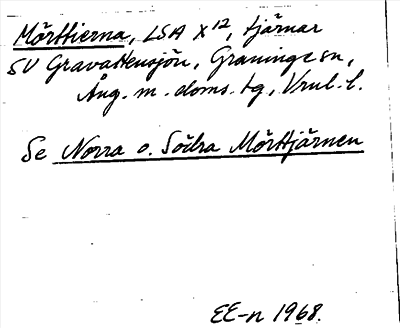 Mörttierna, LSA X¹², tjärnar
SV Gravattensjön, Graninge sn,
Ång. m. doms. tg, Vrul. l.
Se Norra o. Södra Mörttjärnen
EE-n 1968.